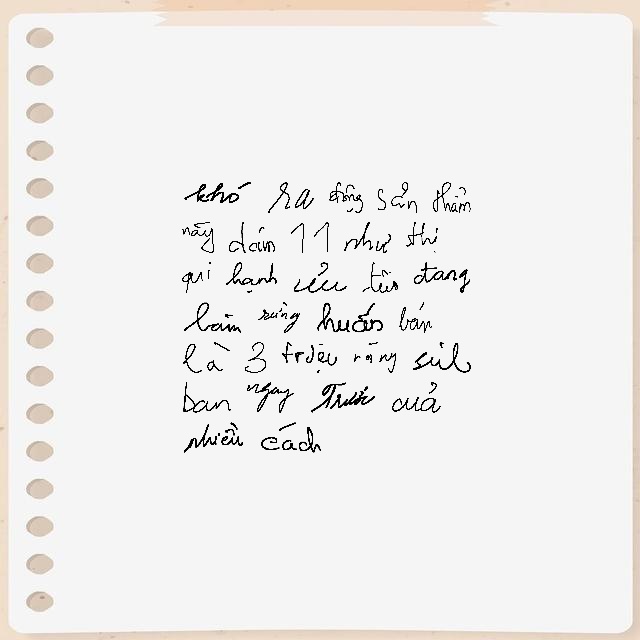 khó ra động sản thẩm
này dám 11 như thị
qui hạnh cứu từ đang
làm rừng huấn bán
là 3 triệu năng sức
ban ngay Trước quả
nhiều cách